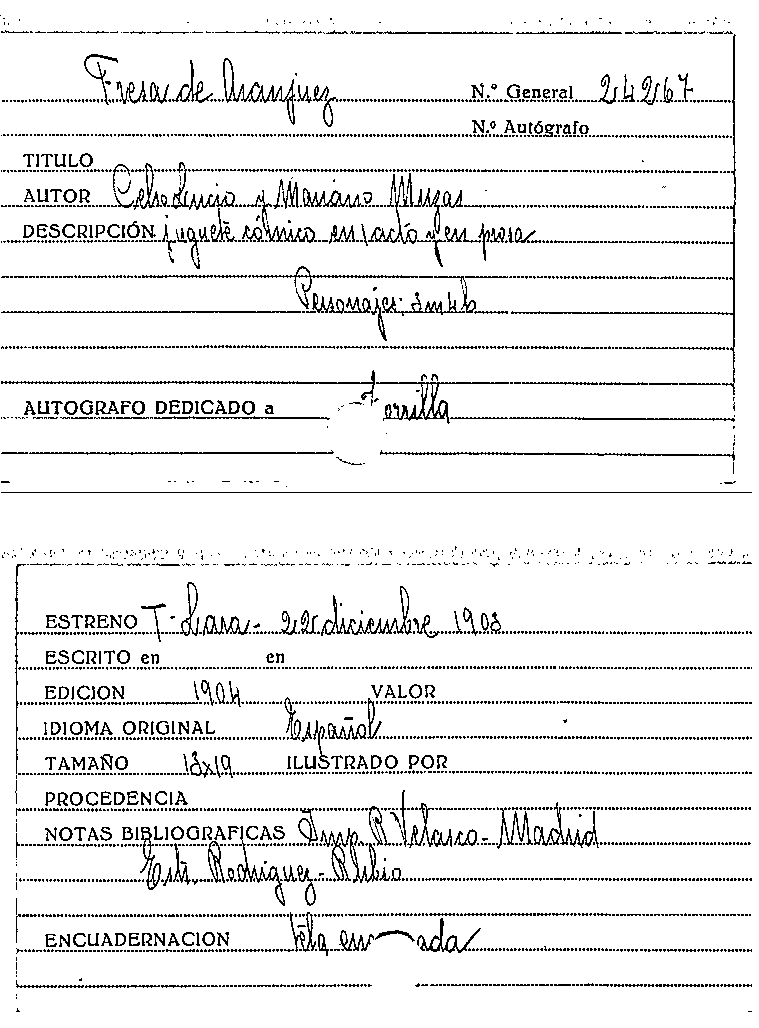 Fresa de Aranjuez
N.º General 24267
N.º Autógrafo
TITULO
AUTOR Celso Lucio y Mariano Muzas
DESCRIPCIÓN juguete cómico en 1 acto y en prosa
Personajes: 3m4h
AUTOGRAFO DEDICADO a
ESTRENO T. Lara - 22 diciembre 1903
ESCRITO en en
EDICION 1904 VALOR
IDIOMA ORIGINAL Español
TAMAÑO 13x19 ILUSTRADO POR
PROCEDENCIA
NOTAS BIBLIOGRAFICAS Imp. R Velasco - Madrid
Estr. Rodriguez - Rubio
ENCUADERNACION tela